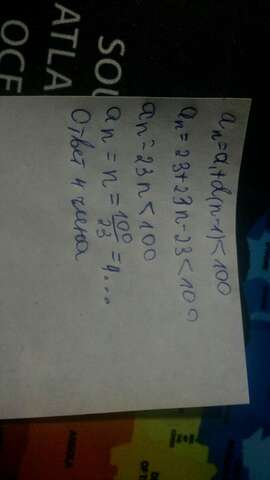 SOU
ATLA
OCE
an = a1 + d(n-1) < 100
an = 23 + 23n - 23 < 100
an = 23n < 100
an = n = 100/23 = 4, ...
Ответ 4 члена
ANGOLA